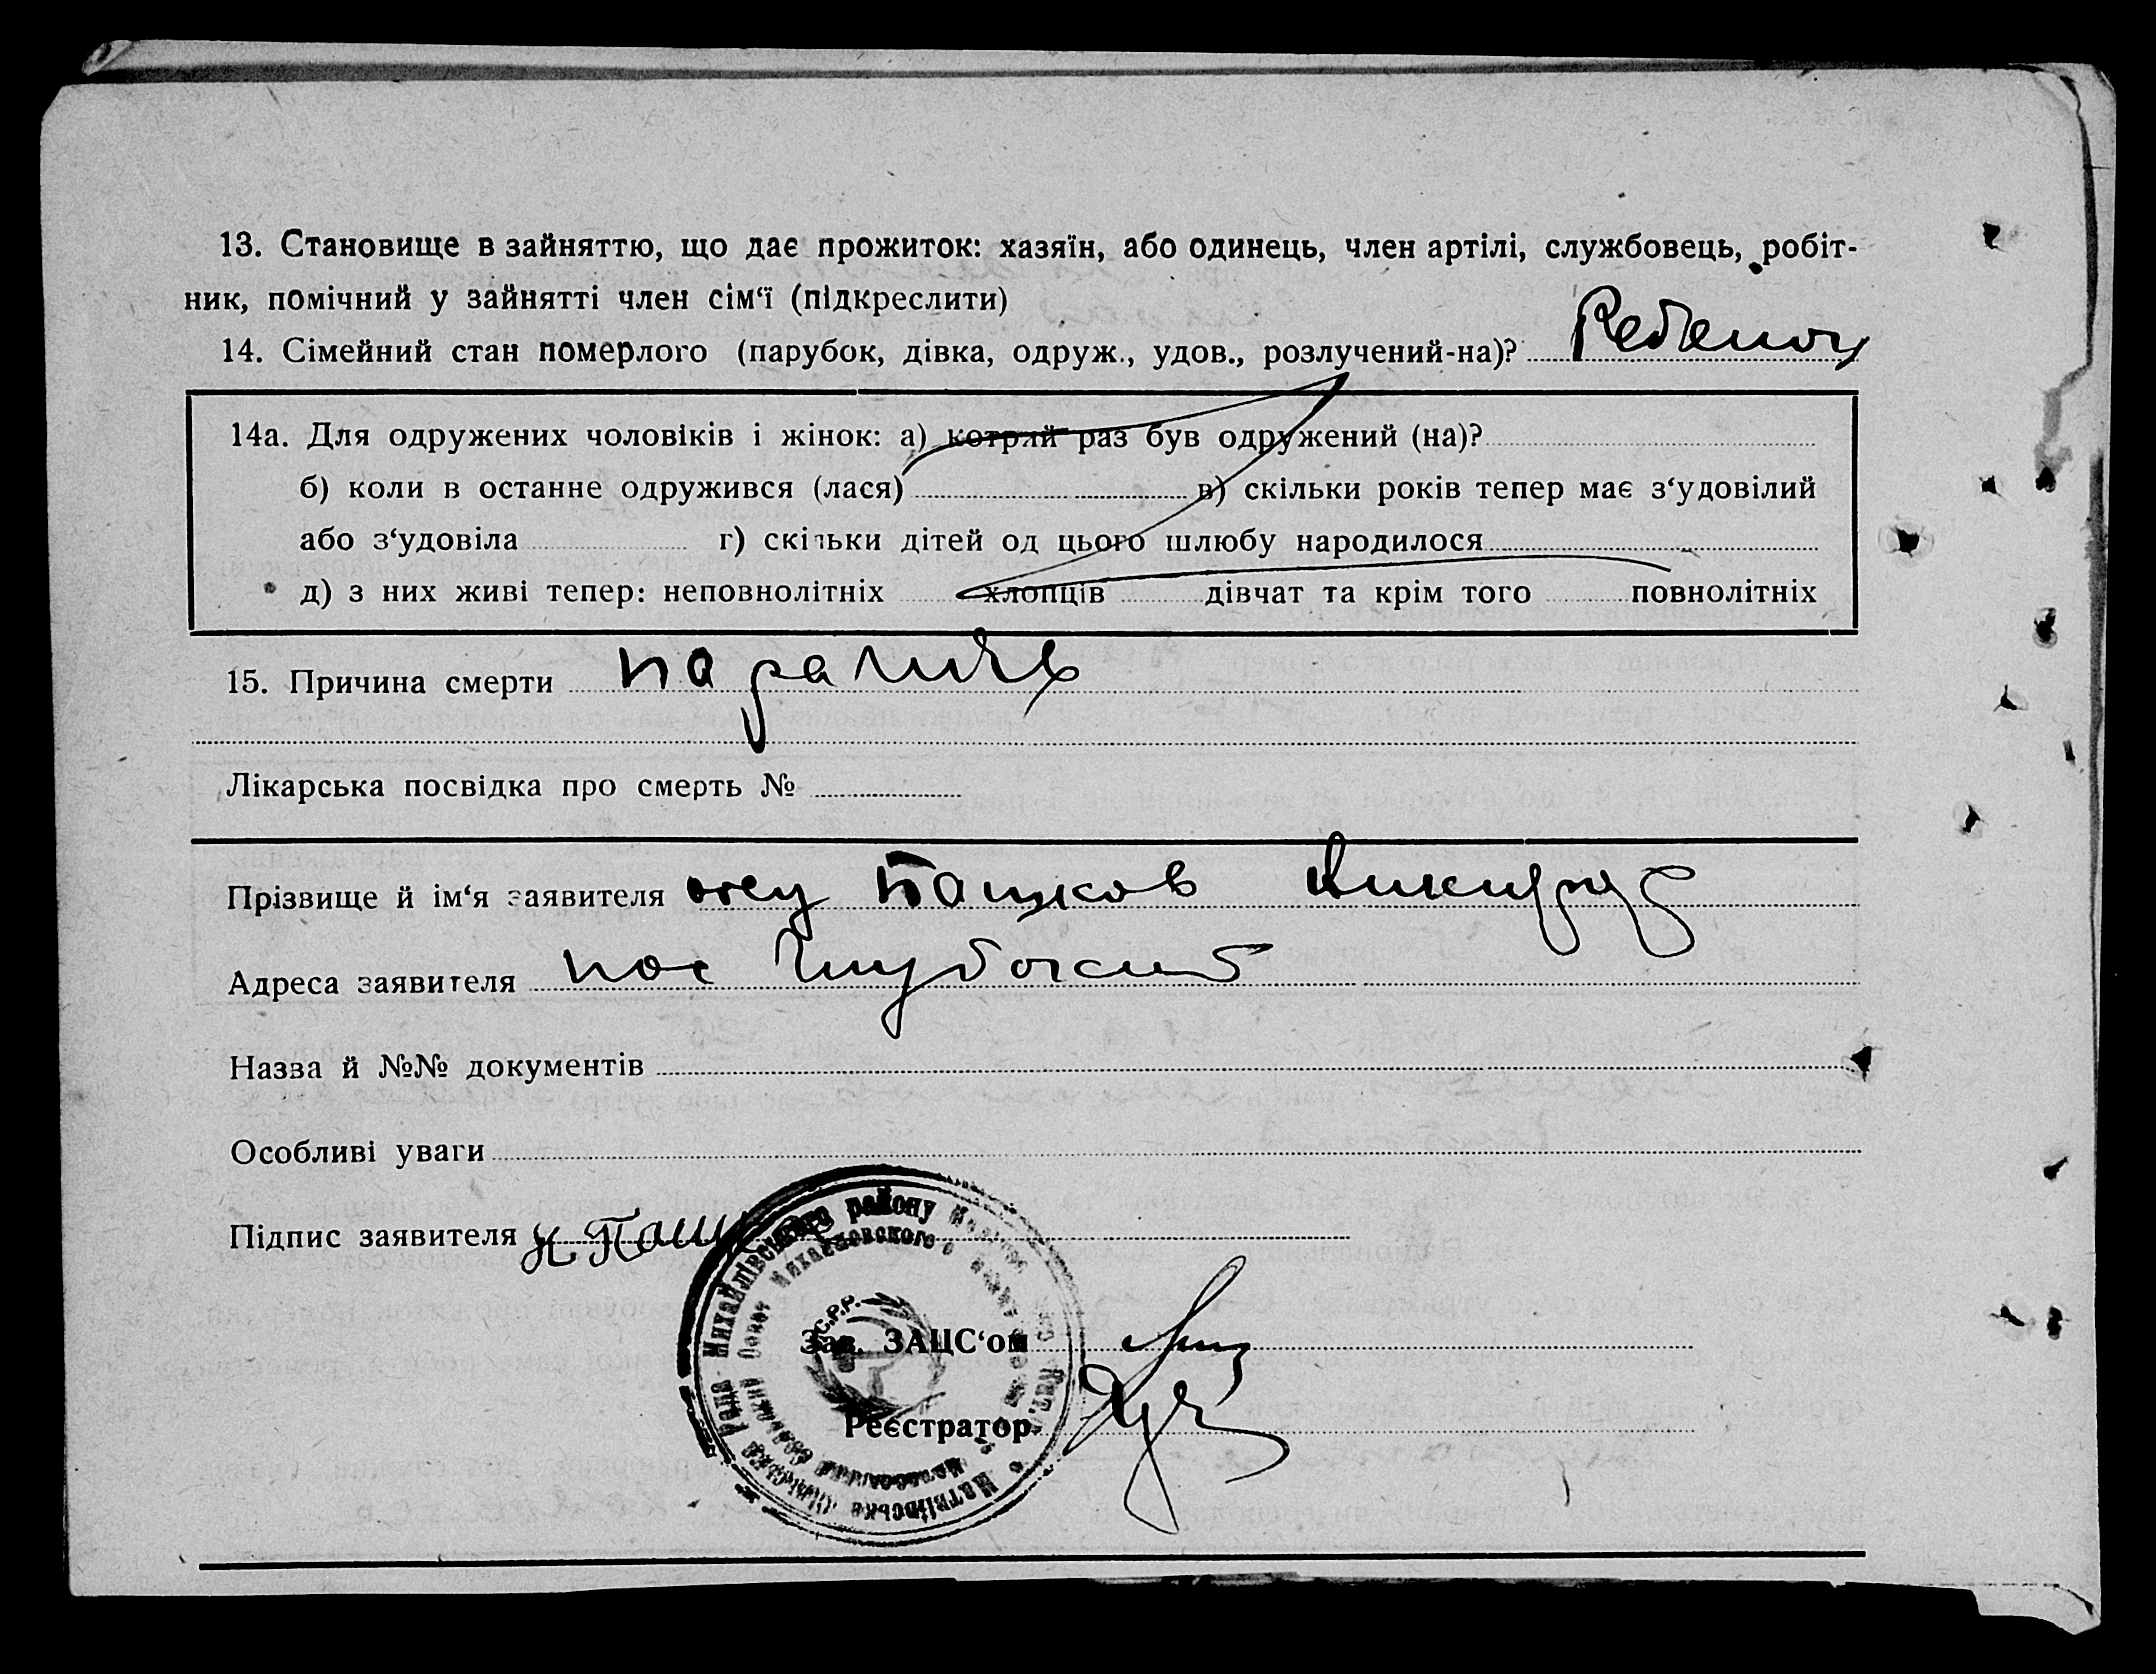 13. Становище в зайняттю, що дає прожиток: хазяїн, або одинець, член артілі, службовець, робіт-
ник, помічний у зайнятті член сім‘ї (підкреслити)
14. Сімейний стан померлого (парубок, дівка, одруж., удов., розлучений-на)? Ребенок
14а. Для одружених чоловіків і жінок: а) котрий раз був одружений (на)?
б) коли в останне одружився (лася) в) скільки років тепер має з‘удовілий
або з‘удовіла г) скільки дітей од цього шлюбу народилося
д) з них живі тепер: неповнолітніх хлопців дівчат та крім того повнолітніх
15. Причина смерти паралич
Лікарська посвідка про смерть №
Прізвище й ім‘я заявителя отец Пашков
Адреса заявителя пос
Назва й №№ документів
Особливі уваги
Підпис заявителя
Михайлівського району
Михайловского
С.Р.Р.
Зав. ЗАЦС‘ом
Реєстратор